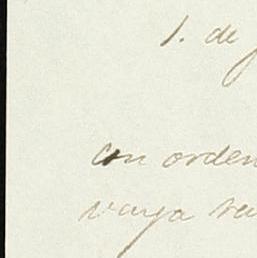 1. de
con orden
vaya